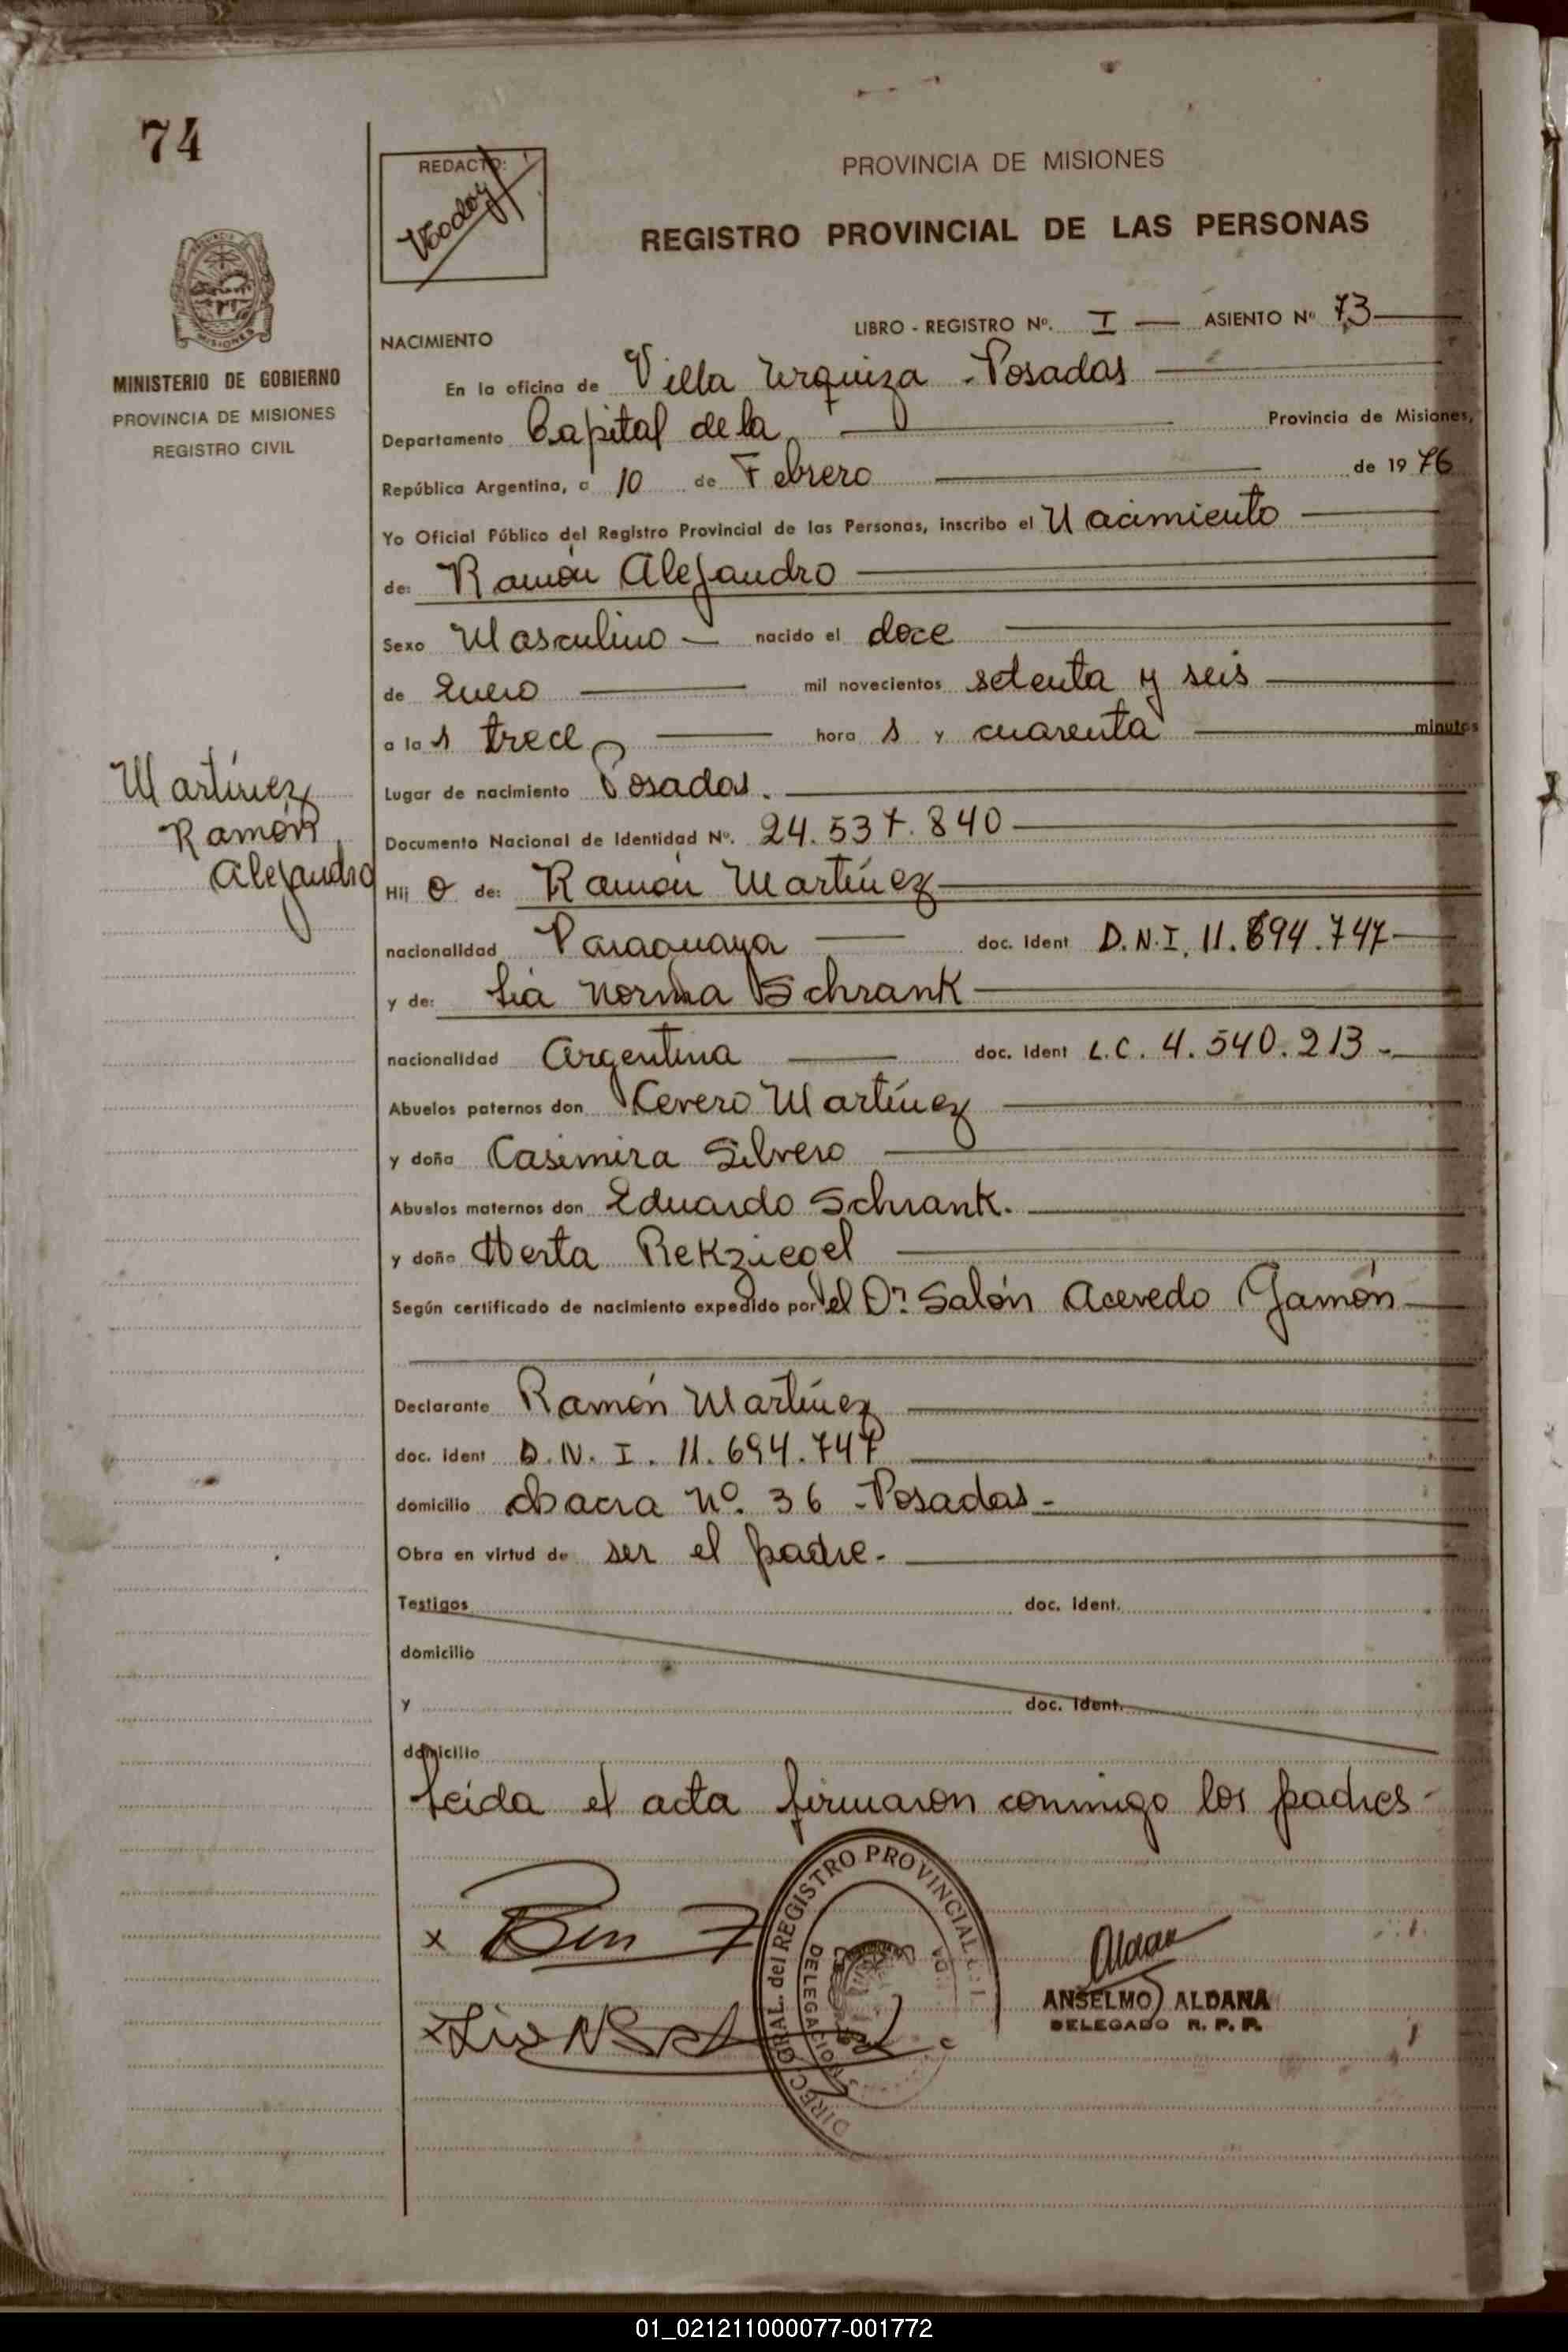 74
REDACTO:
PROVINCIA DE MISIONES
REGISTRO PROVINCIAL DE LAS PERSONAS
MISIONES
MINISTERIO DE GOBIERNO
PROVINCIA DE MISIONES
REGISTRO CIVIL
LIBRO - REGISTRO Nº. I — ASIENTO Nº 73
NACIMIENTO
En la oficina de Villa Urquiza - Posadas
Departamento Capital de la Provincia de Misiones,
República Argentina, a 10 de Febrero de 1976
Yo Oficial Público del Registro Provincial de las Personas, inscribo el Nacimiento
de: Ramón Alejandro
Sexo Masculino — nacido el doce
de Enero mil novecientos setenta y seis
a las trece horas y cuarenta minutos
Lugar de nacimiento Posadas.
Documento Nacional de Identidad Nº. 24.537.840
Martínez
Ramón
Alejandro
Hijo de: Ramón Martínez
nacionalidad Paraguaya doc. Ident D.N.I. 11.694.747
y de: Lia Norma Schrank
nacionalidad Argentina doc. Ident L.C. 4.540.213 -
Abuelos paternos don Cevero Martínez
y doña Casimira Silvero
Abuelos maternos don Eduardo Schrank.
y doña Herta Rekziegel
Según certificado de nacimiento expedido por el Dr. Salón Acevedo Gamón
Declarante Ramón Martínez
doc. ident D.N.I. 11.694.747
domicilio chacra Nº. 36 - Posadas -
Obra en virtud de ser el padre.
Testigos doc. ident.
domicilio
y doc. ident.
domicilio
Leida el acta firmaron conmigo los padres -
x
x
DIREC. GRAL. del REGISTRO PROVINCIAL
DELEGACION
ANSELMO ALDANA
DELEGADO R. P. P.
01_021211000077-001772